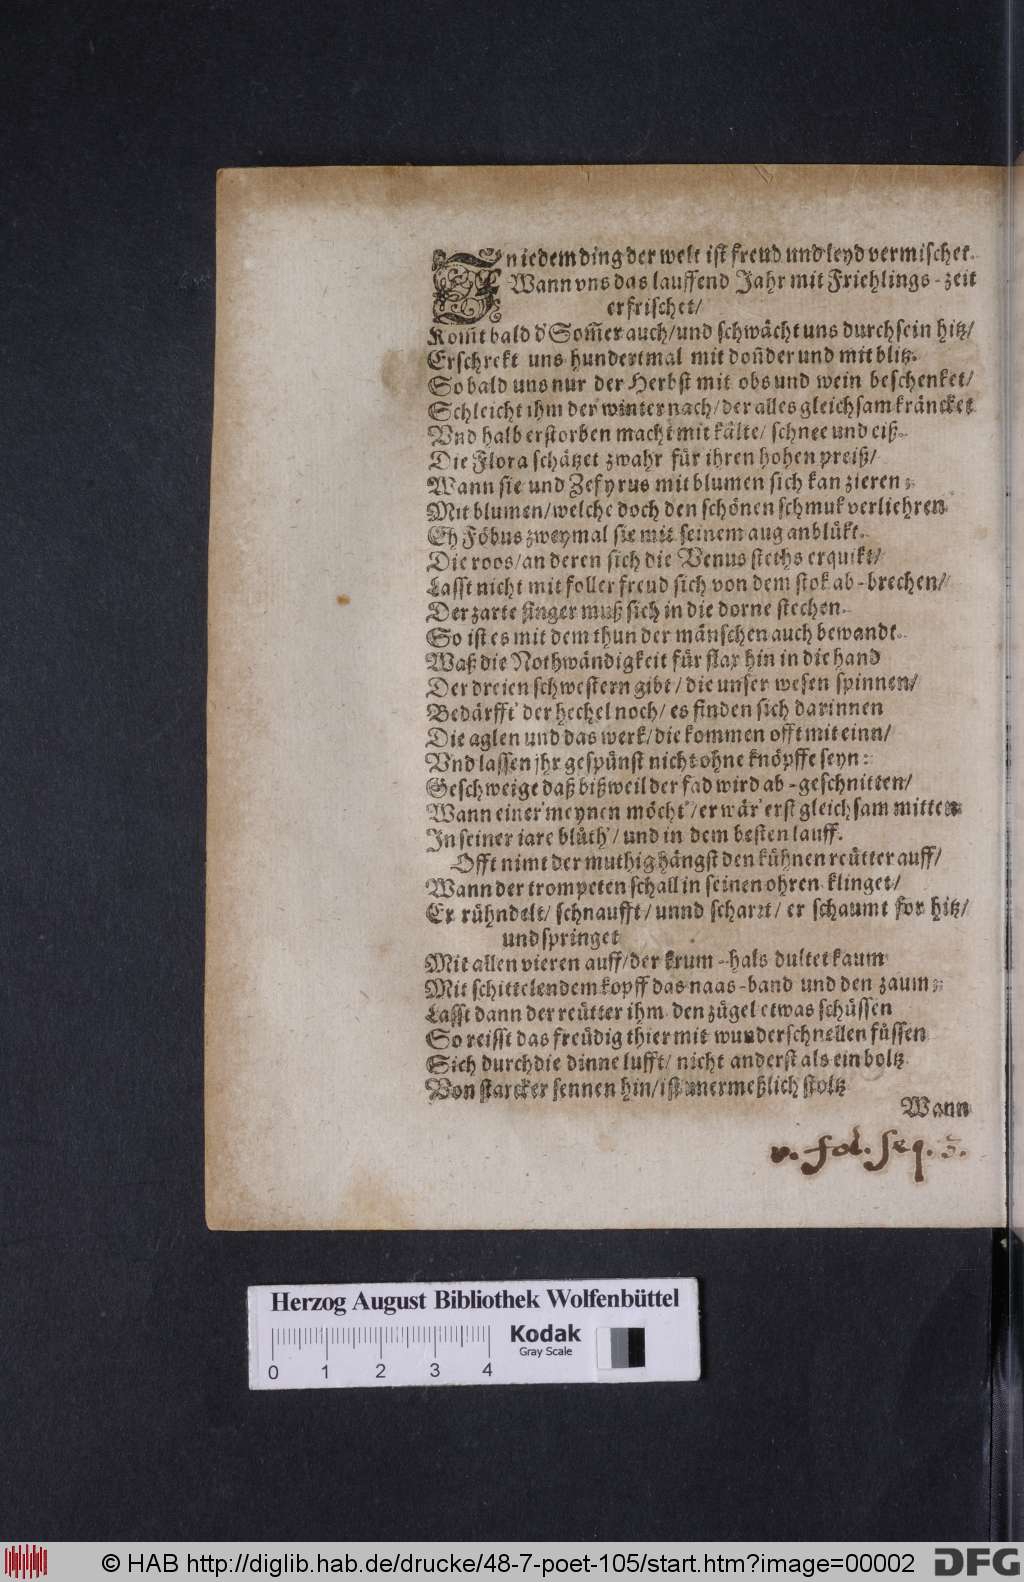 In iedem ding der welt ist freud und leyd vermischet.
Wann vns das lauffend Jahr mit Friehlings-zeit
erfrischet/
Kom̃t bald d' Som̃er auch/und schwächt uns durch sein hitz/
Erschrekt uns hundertmal mit don̄der und mit blitz.
So bald uns nur der Herbst mit obs und wein beschenket/
Schleicht ihm der winter nach/der alles gleichsam kräncket
Vnd halb erstorben macht mit kälte/ schnee und eiß.
Die Flora schätzet zwahr für ihren hohen preiß/
Wann sie und Zefyrus mit blumen sich kan zieren;
Mit blumen/welche doch den schönen schmuk verliehren
Eh Föbus zweymal sie mit seinem aug anblükt.
Die roos/an deren sich die Venus steths erquikt/
Lasst nicht mit foller freud sich von dem stok ab-brechen/
Der zarte finger muß sich in die dorne stechen.
So ist es mit dem thun der mänschen auch bewandt.
Waß die Nothwändigkeit für flax hin in die hand
Der dreien schwestern gibt/die unser wesen spinnen/
Bedärfft' der hechel noch/ es finden sich darinnen
Die aglen und das werk/die kommen offt mit einn/
Vnd lassen jhr gespünst nicht ohne knöpffe seyn:
Geschweige daß bißweil der fad wird ab-geschnitten/
Wann einer meynen möcht'/er wär' erst gleichsam mitten
In seiner iare blüth'/ und in dem besten lauff.
Offt nimt der muthig hängst den kühnen reütter auff/
Wann der trompeten schall in seinen ohren klinget/
Er rühndelt/ schnaufft/ unnd scharrt/ er schaumt for hitz/
und springet
Mit allen vieren auff/der krum-hals dultet kaum
Mit schittelendem kopff das naas-band und den zaum;
Lasst dann der reütter ihm den zügel etwas schüssen
So reisst das freüdig thier mit wunderschnellen füssen
Sich durch die dinne lufft/ nicht anderst als ein boltz
Von starcker sennen hin/ist unermeßlich stoltz
Wann
v. fol. seq. 3.
Herzog August Bibliothek Wolfenbüttel
Kodak
Gray Scale
0 1 2 3 4
© HAB http://diglib.hab.de/drucke/48-7-poet-105/start.htm?image=00002
DFG